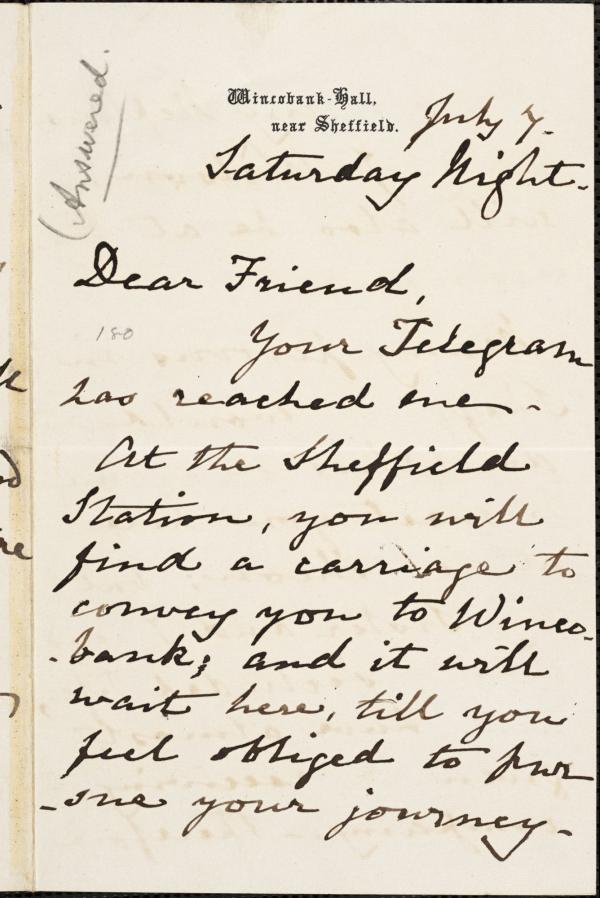 (Answered.
Wincobank-Hall,
near Sheffield.
July 7.
Saturday Night.
Dear Friend,
180
Your Telegram
has reached me.
At the Sheffield
Station, you will
find a carriage to
convey you to Winco-
-bank; and it will
wait here, till you
feel obliged to pur
-sue your journey.